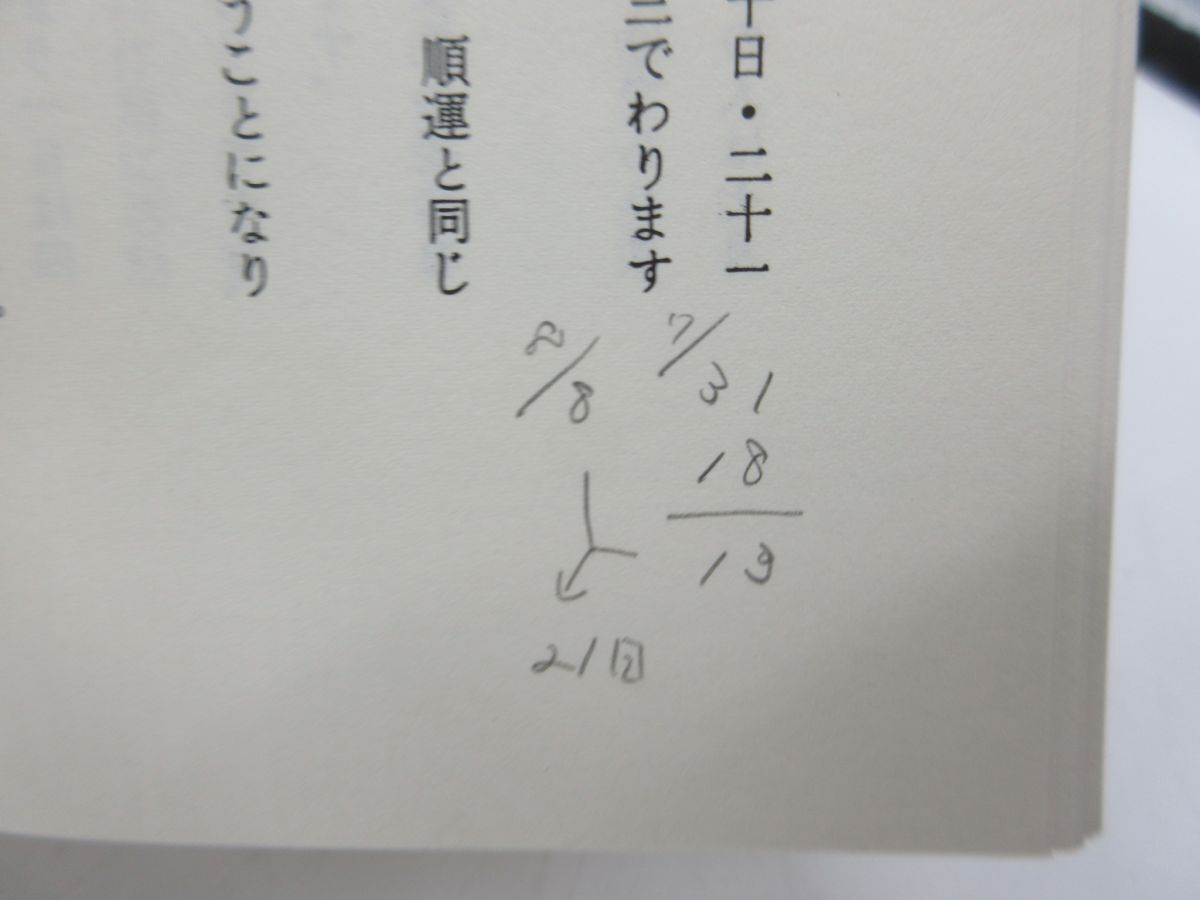 十日・二十一
三でわります
順運と同じ
うことになり
7/31
18
19
8/8
21日